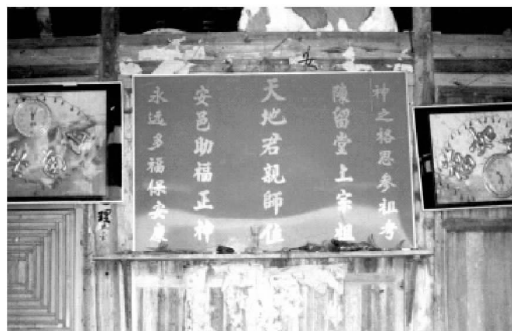 神之格思参祖考
陳留堂上宗祖
天地君親師位
安邑助福正神
永远多福保安康